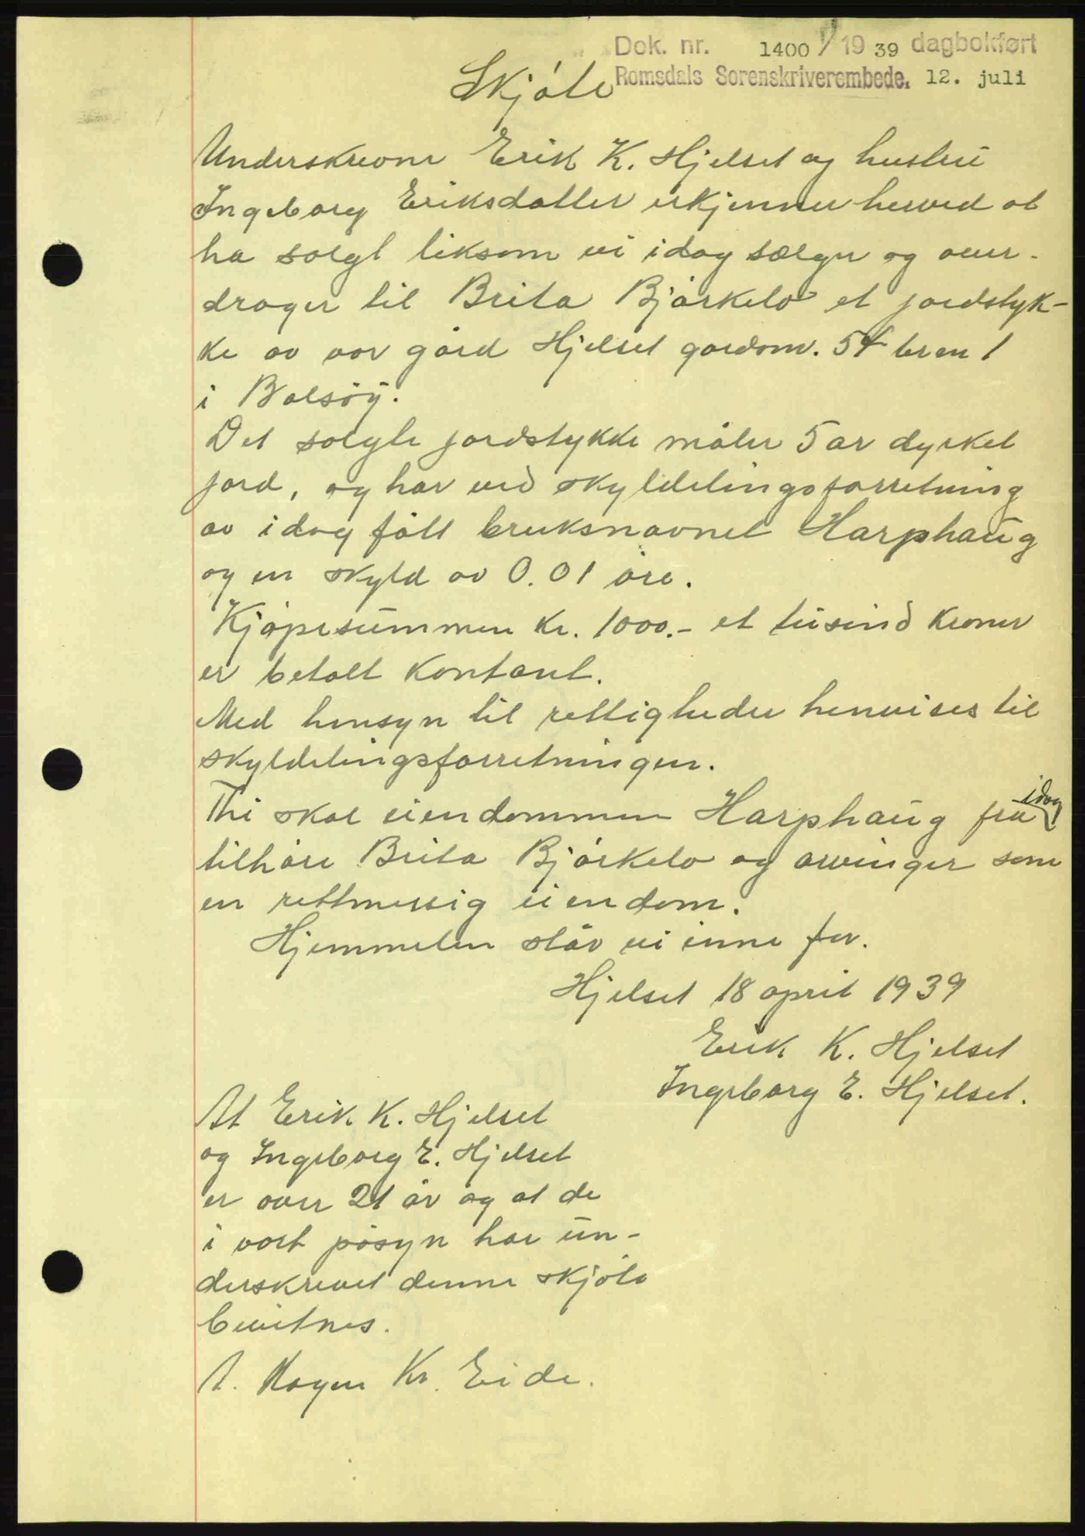 Dok. nr. 1400 / 19 39 dagbokført
Romsdals Sorenskriverembede. 12. juli
Skjöte
Underskrevne Erik K. Hjelset og hustru
Ingeborg Eriksdatter erkjenner herved at
ha solgt liksom vi idag sælger og over-
drager til Brita Björkelo et jordstyk-
ke av vor gård Hjelset gardsnr. 54 br.nr 1
i Bolsöy.
Det solgte jordstykke måler 5 ar dyrket
jord, og har ved skyldelingsforretning
av idag fått bruksnavnet Harphaug
og en skyld av 0.01 öre.
Kjöpesummen kr. 1000.- et tusind kroner
er betalt kontant.
Med hensyn til rettigheder henvises til
skyldelingsforretningen.
Thi skal eiendommen Harphaug fra idag
tilhöre Brita Björkelo og arvinger som
en rettmessig eiendom.
Hjemmelen står vi inne for.
Hjelset 18 april 1939
Erik K. Hjelset
Ingeborg E. Hjelset.
At Erik K. Hjelset
og Ingeborg E. Hjelset
er over 21 år og at de
i vort påsyn har un-
derskrevet denne skjöte
bevitnes.
A. Hagen Kr. Eide.